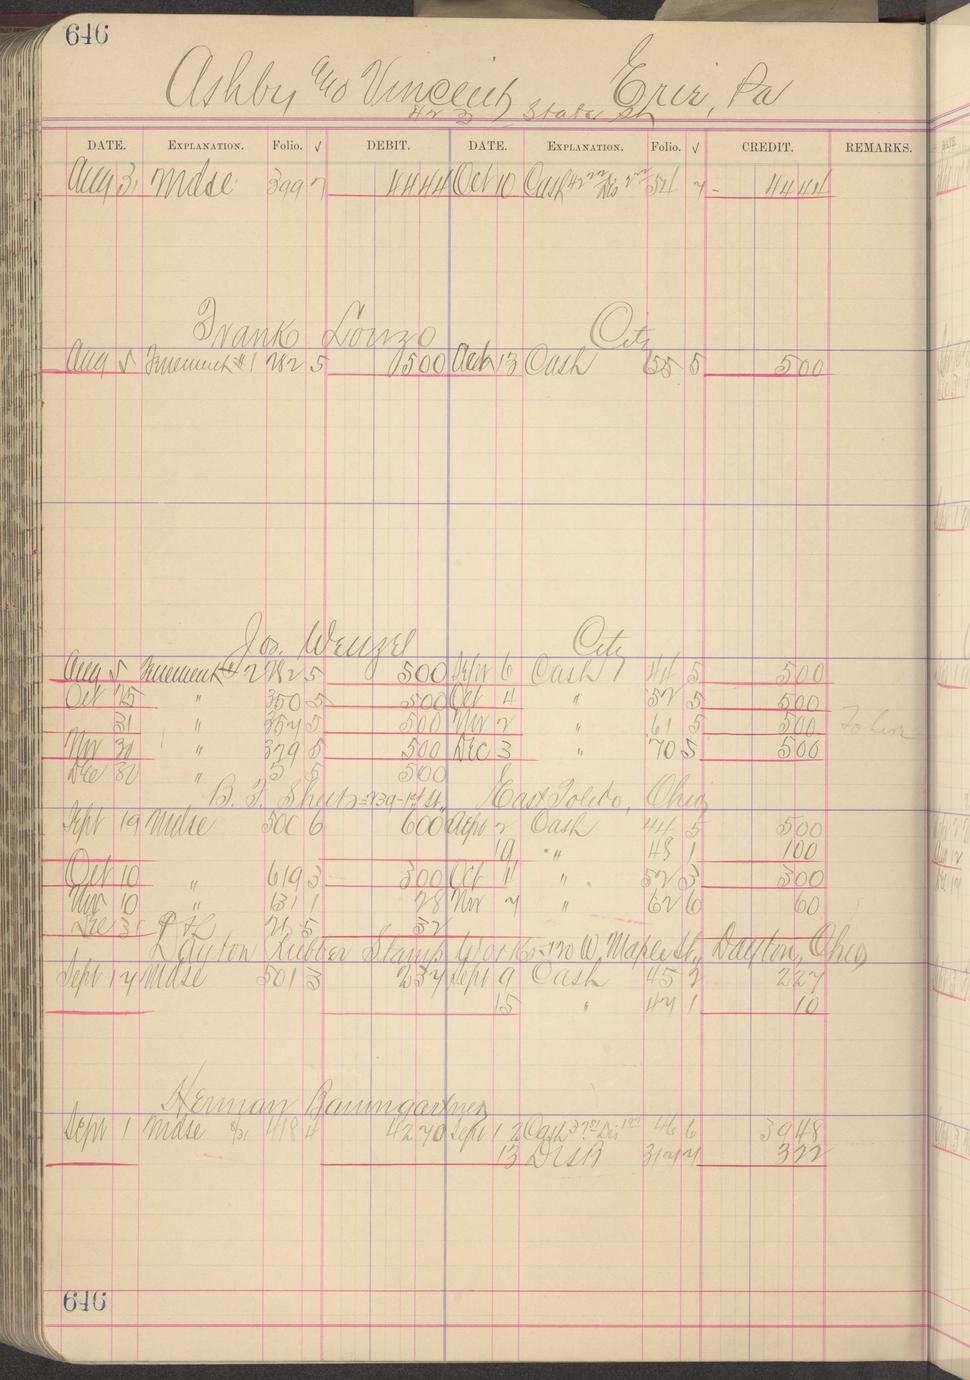 646
Ashby and Vincent Erie, Pa
423 State St
DATE. EXPLANATION. Folio. √ DEBIT. DATE. EXPLANATION. Folio. √ CREDIT. REMARKS.
Aug 31 Mdse 399 7 4444 Oct 10 Cash 42 22 Dis 2 22 54 7 4444
Frank Lonzo City
Aug 5 Tenement #1 282 5 500 13 Cash 55 5 500
Jos. Wenzel City
Aug 5 Tenement #2 282 5 500 Sept 6 Cash 44 5 500
Oct 25 " 350 5 500 Oct 4 " 52 5 500
31 " 357 5 500 Nov 2 " 61 5 500
Nov 30 " 379 5 500 Dec 3 " 70 5 500
Dec 32 " 5 5 500
B. F. Sheets = 239-1st St., East Toledo, Ohio
Sept 19 Mdse 500 6 600 Sept 2 Cash 44 5 500
19 " 48 1 100
Oct 10 " 619 3 300 Oct 4 " 52 3 300
Nov 10 " 631 1 28 Nov 7 " 62 6 60
Dec 31 P&L 21 5 32
Dayton Rubber Stamp Works - 170 W Maple St., Dayton, Ohio
Sept 17 Mdse 501 3 237 Sept 9 Cash 45 2 227
15 " 47 1 10
Herman Baumgartner
Sept 1 Mdse 8/31 418 4 4270 Sept 12 Cash Dis 46 6 3948
13 Disk 317 7 322
646